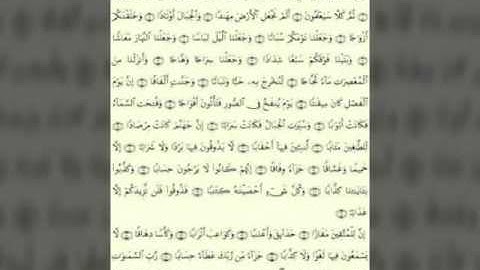 ثُمَّ كَلَّا سَيَعْلَمُونَ ۝ أَلَمْ نَجْعَلِ ٱلْأَرْضَ مِهَٰدًا ۝ وَٱلْجِبَالَ أَوْتَادًا ۝ وَخَلَقْنَٰكُمْ
أَزْوَٰجًا ۝ وَجَعَلْنَا نَوْمَكُمْ سُبَاتًا ۝ وَجَعَلْنَا ٱلَّيْلَ لِبَاسًا ۝ وَجَعَلْنَا ٱلنَّهَارَ مَعَاشًا
۝ وَبَنَيْنَا فَوْقَكُمْ سَبْعًا شِدَادًا ۝ وَجَعَلْنَا سِرَاجًا وَهَّاجًا ۝ وَأَنزَلْنَا مِنَ
ٱلْمُعْصِرَٰتِ مَآءً ثَجَّاجًا ۝ لِّنُخْرِجَ بِهِۦ حَبًّا وَنَبَاتًا ۝ وَجَنَّٰتٍ أَلْفَافًا ۝ إِنَّ يَوْمَ
ٱلْفَصْلِ كَانَ مِيقَٰتًا ۝ يَوْمَ يُنفَخُ فِى ٱلصُّورِ فَتَأْتُونَ أَفْوَاجًا ۝ وَفُتِحَتِ ٱلسَّمَآءُ
فَكَانَتْ أَبْوَٰبًا ۝ وَسُيِّرَتِ ٱلْجِبَالُ فَكَانَتْ سَرَابًا ۝ إِنَّ جَهَنَّمَ كَانَتْ مِرْصَادًا ۝
لِّلطَّٰغِينَ مَـَٔابًا ۝ لَّٰبِثِينَ فِيهَآ أَحْقَابًا ۝ لَّا يَذُوقُونَ فِيهَا بَرْدًا وَلَا شَرَابًا ۝ إِلَّا
حَمِيمًا وَغَسَّاقًا ۝ جَزَآءً وِفَاقًا ۝ إِنَّهُمْ كَانُوا۟ لَا يَرْجُونَ حِسَابًا ۝ وَكَذَّبُوا۟
بِـَٔايَٰتِنَا كِذَّابًا ۝ وَكُلَّ شَىْءٍ أَحْصَيْنَٰهُ كِتَٰبًا ۝ فَذُوقُوا۟ فَلَن نَّزِيدَكُمْ إِلَّا
عَذَابًا ۝
إِنَّ لِلْمُتَّقِينَ مَفَازًا ۝ حَدَآئِقَ وَأَعْنَٰبًا ۝ وَكَوَاعِبَ أَتْرَابًا ۝ وَكَأْسًا دِهَاقًا ۝ لَّا
يَسْمَعُونَ فِيهَا لَغْوًا وَلَا كِذَّٰبًا ۝ جَزَآءً مِّن رَّبِّكَ عَطَآءً حِسَابًا ۝ رَّبِّ ٱلسَّمَٰوَٰتِ